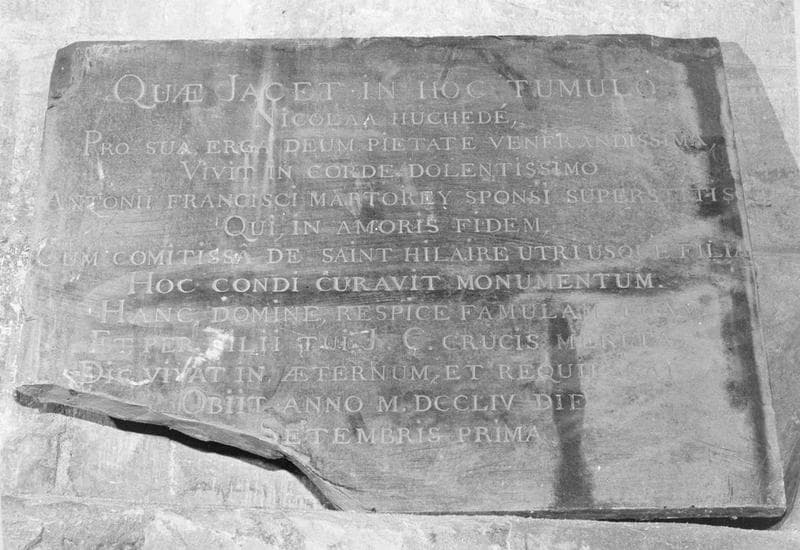 QUÆ JACET IN HOC TUMULO
NICOLAA HUCHEDÉ,
PRO SUA ERGA DEUM PIETATE VENERANDISSIMA,
VIVIT IN CORDE DOLENTISSIMO
ANTONII FRANCISCI MARTOREY SPONSI SUPERSTITIS
QUI, IN AMORIS FIDEM,
CUM COMITISSA DE SAINT HILAIRE UTRIUSQUE FILIA
HOC CONDI CURAVIT MONUMENTUM.
HANC, DOMINE, RESPICE
ET PER FILII TUI J. C. CRUCIS
SIC VIVAT IN ÆTERNUM, ET
OBIIT ANNO M.DCCLIV DIE
SETEMBRIS PRIMA